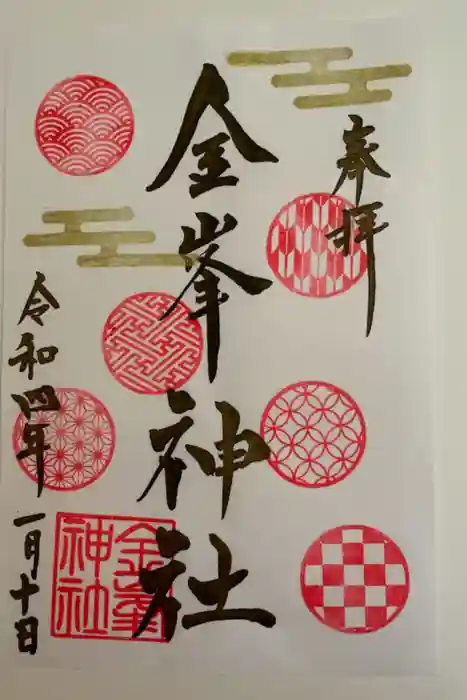 奉拝
金峯神社
令和四年一月十日
金峯神社